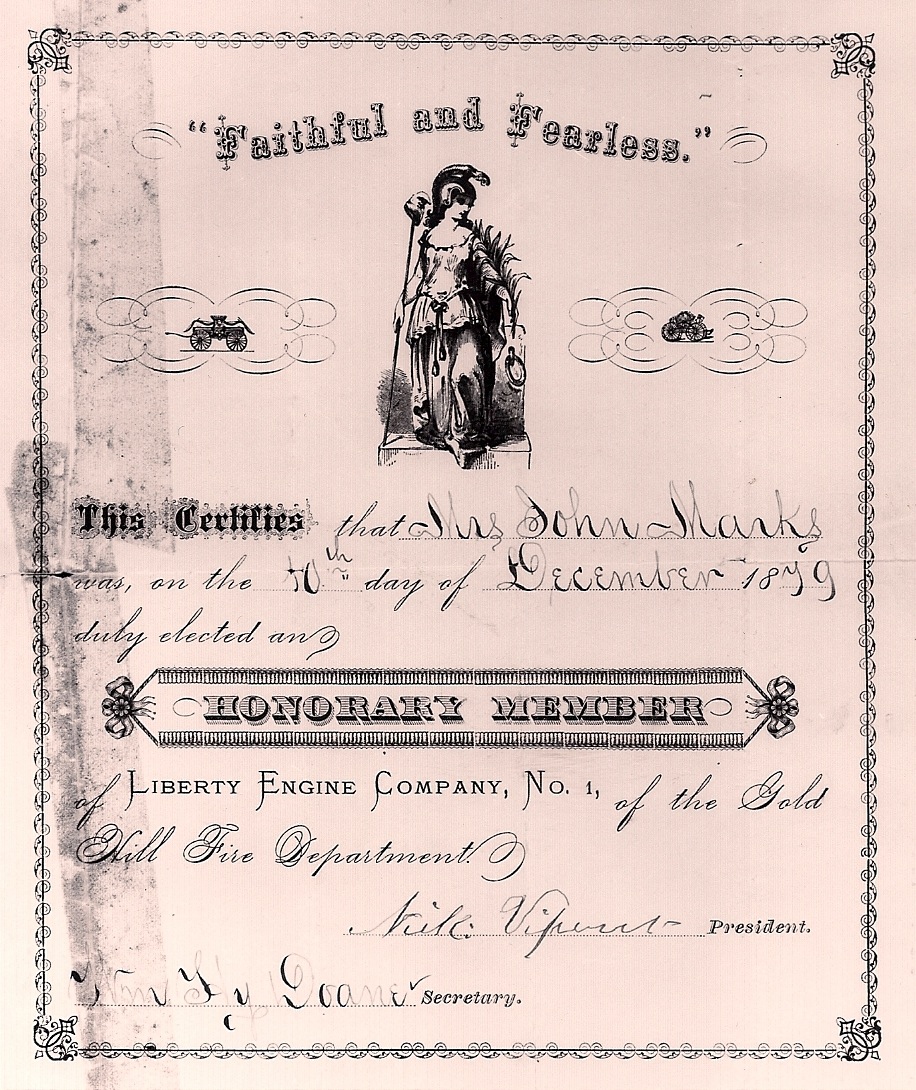 "Faithful and Fearless."
This Certifies that Mrs John Marks
was, on the 10th day of December 1879
duly elected an
HONORARY MEMBER
of LIBERTY ENGINE COMPANY, No. 1, of the Gold
Hill Fire Department.
Nick: President.
Wm Hy Doane Secretary.